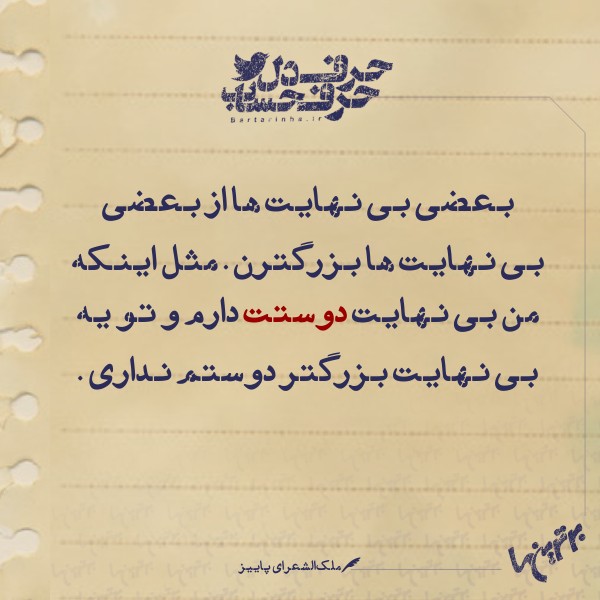 حرف دل
حرف حساب
Bartarinha.ir
بعضی بی نهایت ها از بعضی
بی نهایت ها بزرگترن. مثل اینکه
من بی نهایت دوستت دارم و تو یه
بی نهایت بزرگتر دوستم نداری.
ملک‌الشعرای پاییز
برترین ها